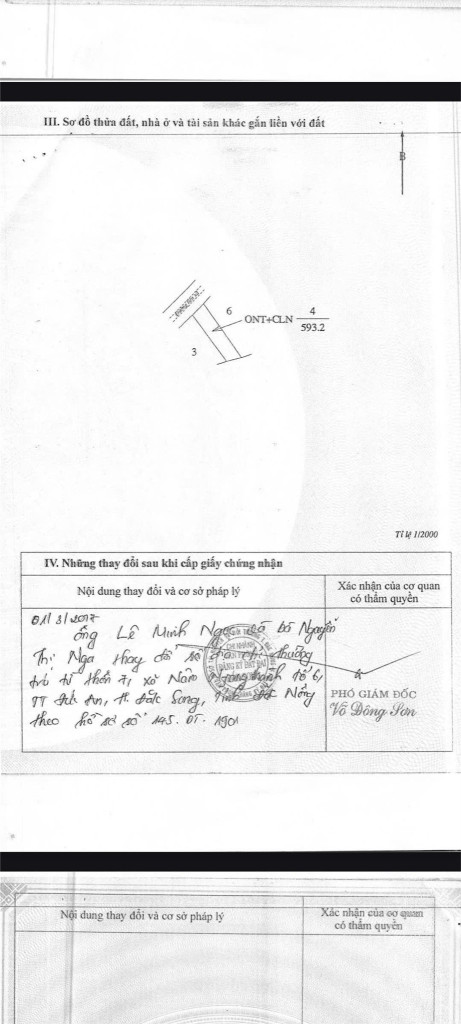 III. Sơ đồ thửa đất, nhà ở và tài sản khác gắn liền với đất
B
6
ONT+CLN 4
593.2
3
Tỉ lệ 1/2000
IV. Những thay đổi sau khi cấp giấy chứng nhận
Nội dung thay đổi và cơ sở pháp lý
Xác nhận của cơ quan
có thẩm quyền
01/3/2017
ông Lê Minh và bà Nguyễn
Thị Nga thay đổi địa chỉ thường
trú từ thôn xã Nâm thành tổ 6,
TT Đức An, H. Đắk Song, tỉnh Đắk Nông
theo hồ sơ số 145. ĐT. 1901
CHI NHÁNH
ĐĂNG KÝ ĐẤT ĐAI
PHÓ GIÁM ĐỐC
Võ Đông Sơn
Nội dung thay đổi và cơ sở pháp lý
Xác nhận của cơ quan
có thẩm quyền